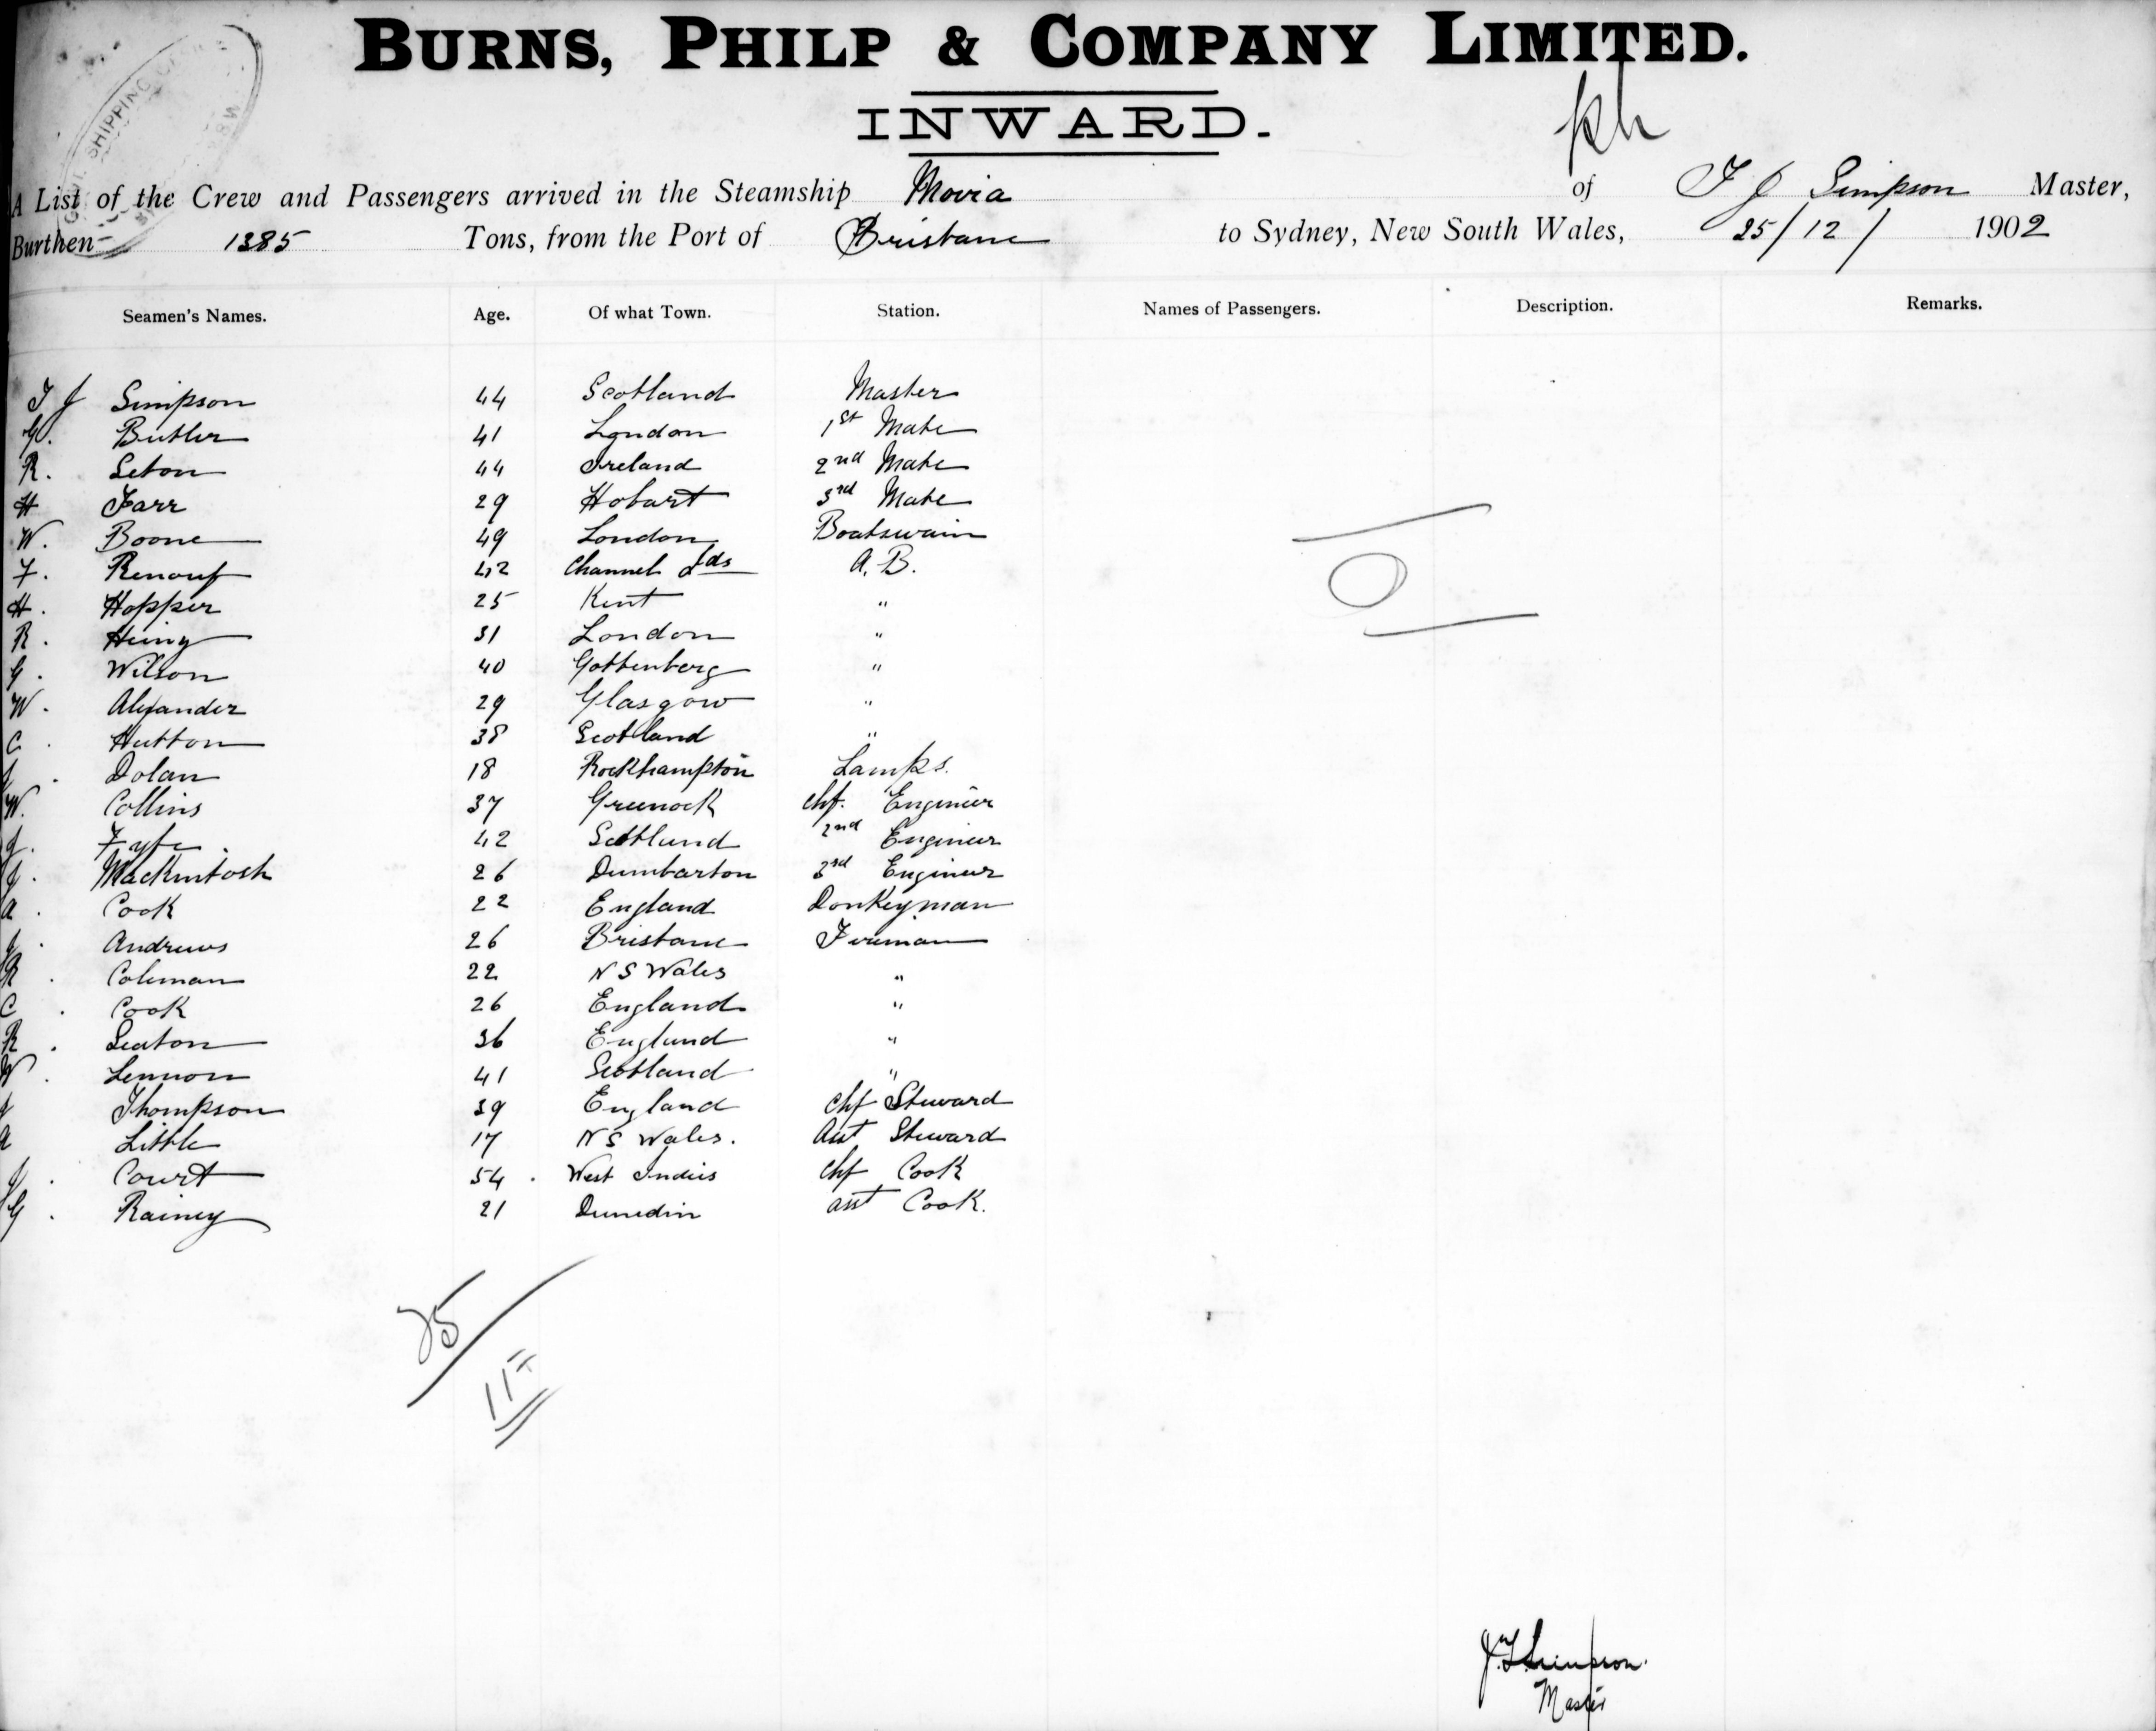 BURNS, PHILP & COMPANY LIMITED.
INWARD.
A List of the Crew and Passengers arrived in the Steamship Moria of T J Simpson Master,
Burthen 1385 Tons, from the Port of Brisbane to Sydney, New South Wales, 25/12/ 1902
Seamen's Names. Age. Of what Town. Station. Names of Passengers. Description. Remarks.
T J Simpson 44 Scotland Master
G. Butler 41 London 1st Mate
R. Seton 44 Ireland 2nd Mate
H Farr 29 Hobart 3rd Mate
W. Boone 49 London Boatswain
F. Renouf 42 Channel Ids A.B.
H. Hopper 25 Kent "
R. 31 London "
G. Wilson 40 Gottenberg "
W. Alexander 29 Glasgow "
C. Hutton 38 Scotland "
Dolan 18 Rockhampton Lamps.
W. Collins 37 Greenock Chf. Engineer
J. Fyfe. 42 Scotland 2nd Engineer
J. Mackintosh 26 Dumbarton 3rd Engineer
A. Cook 22 England Donkeyman
J. Andrews 26 Brisbane Fireman
R. Coleman 22 N S Wales "
C. Cook 26 England "
R. Seaton 36 England "
W. Lennon 41 Scotland "
Thompson 39 England Chf Steward
A Little 17 N S Wales. Asst Steward
J. Court 54. West Indies Chf Cook
G. Rainey 21 Dunedin asst Cook.
25
Simpson.
Master